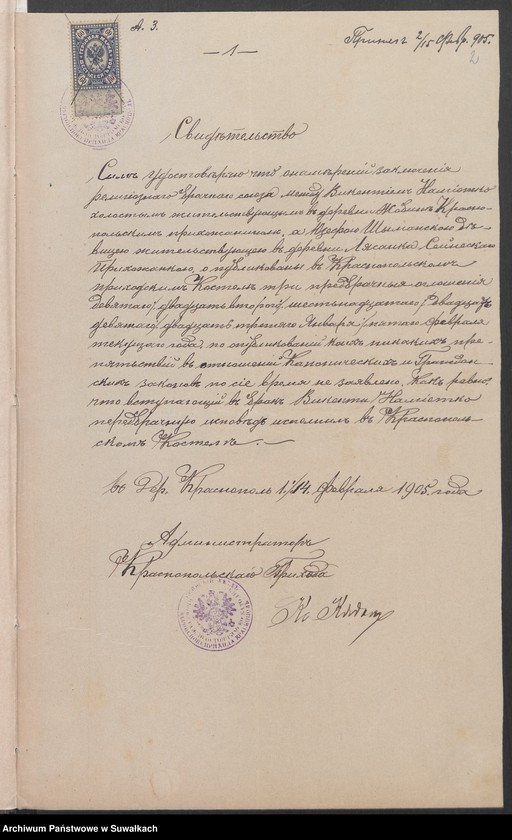 А. 3.
— 1 —
Принят 2/15 Февр. 905.
2
Свидѣтельство
Симъ удостовѣряю что о намѣреніи заключенія
религіознаго брачнаго союза между Викентіемъ Намѣтко
холостымъ жительствующимъ въ деревни Жобинъ Красно-
польскимъ прихожаниномъ, а Юзефою Шиманскою дѣ-
вицею жительствующею въ деревни Сейвенскою
прихожанкою, опубликованы въ Краснопольскомъ
приходскимъ Костелѣ три предбрачныя оглашенія
девятаго / двадцать второго, шестьнадцатаго / двадцать
девятаго, двадцать третяго Января / пятаго февраля
текущаго года, по опубликованіи коихъ никакихъ пре-
пятствій въ отношеніи Каноническихъ и Граждан-
скихъ законовъ по сіе время не заявлено, какъ равно,
что вступающій въ бракъ Викентій Намѣтко
передбрачную исповѣдь исполнилъ въ Краснополь-
скомъ Костелѣ. —
въ Дер. Краснополь 1/14 февраля 1905. года
Администраторъ
Краснопольскаго Прихода
Кс.
Archiwum Państwowe w Suwałkach